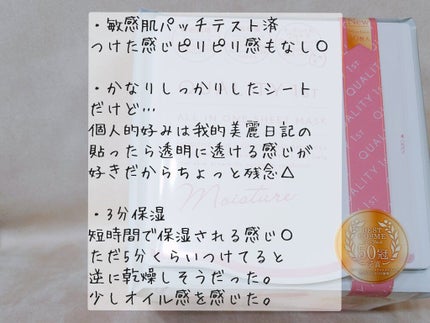 ・敏感肌パッチテスト済
つけた感じピリピリ感もなし〇
・かなりしっかりしたシート
だけど…
個人的好みは我的美麗日記の
貼ったら透明に透ける感じが
好きだからちょっと残念△
・3分保湿
短時間で保湿される感じ〇
ただ5分くらいつけてると
逆に乾燥しそうだった。
少しオイル感を感じた。
Moisture
NEW
QUALITY 1ST
QUALITY 1ST
BEST
50冠